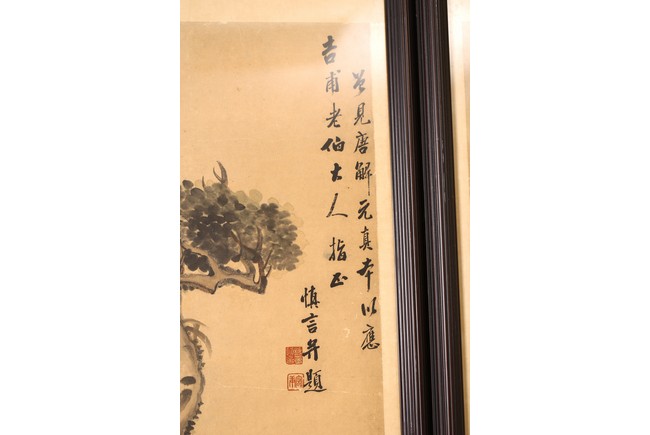 曾見唐解元真本以應
吉甫老伯大人指正
慎言并題